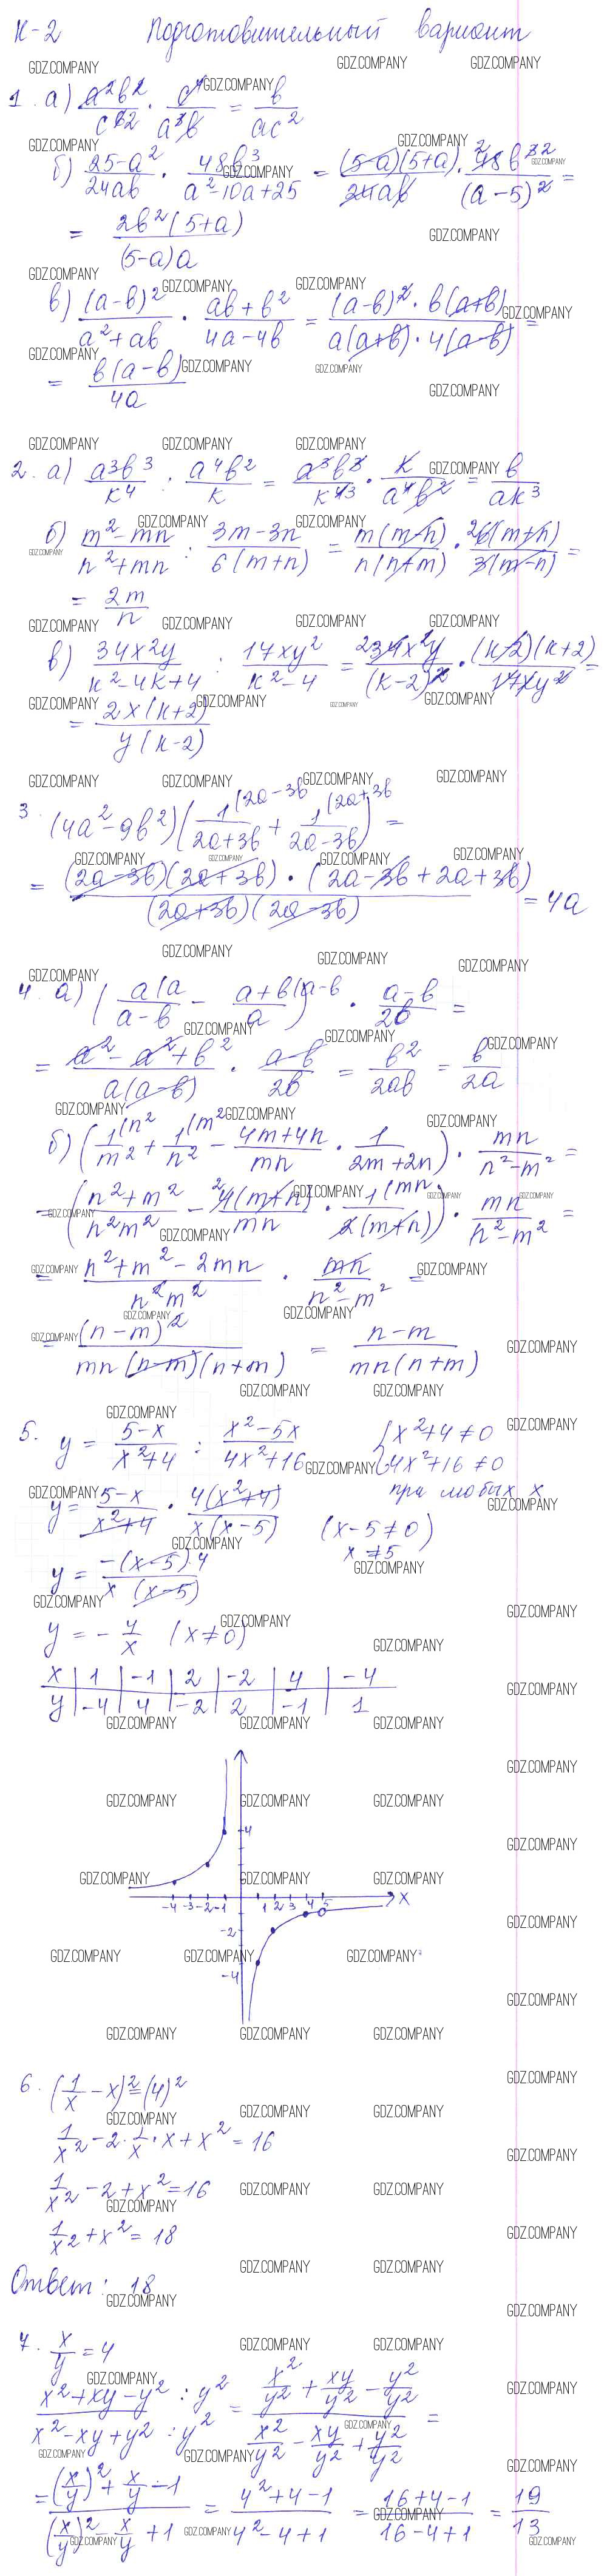 К-2 Подготовительный вариант
1. а) a²b²/cb² · c⁴/a³b = b/ac²
б) 25-a²/24ab · 48b³/a²-10a+25 = (5-a)(5+a)·48b³/24ab(a-5)² =
= 2b²(5+a)/(5-a)a
в) (a-b)²/a²+ab · ab+b²/4a-4b = (a-b)²·b(a+b)/a(a+b)·4(a-b) =
= b(a-b)/4a
2. а) a³b³/k⁴ : a⁴b²/k = a³b³/k⁴ · k/a⁴b² = b/ak³
б) m²-mn/n²+mn : 3m-3n/6(m+n) = m(m-n)/n(n+m) · 6(m+n)/3(m-n) =
= 2m/n
в) 34x²y/k²-4k+4 : 17xy²/k²-4 = 34x²y/(k-2)² · (k-2)(k+2)/17xy² =
= 2x(k+2)/y(k-2)
3. (4a²-9b²)(1/2a+3b + 1/2a-3b) =
= (2a-3b)(2a+3b)·(2a-3b+2a+3b)/(2a+3b)(2a-3b) = 4a
4. а) (a/a-b - a+b/a) · a-b/2b =
= a²-a²+b²/a(a-b) · a-b/2b = b²/2ab = b/2a
б) (1/m² + 1/n² - 4m+4n/mn · 1/2m+2n) · mn/n²-m² =
= (n²+m²/n²m² - 4(m+n)/mn · 1/2(m+n)) · mn/n²-m² =
= n²+m²-2mn/n²m² · mn/n²-m² =
= (n-m)²/mn(n-m)(n+m) = n-m/mn(n+m)
5. y = 5-x/x²+4 : x²-5x/4x²+16 {x²+4≠0
4x²+16≠0
y = 5-x/x²+4 · 4(x²+4)/x(x-5) при любых x
(x-5≠0)
x≠5
y = -(x-5)4/x(x-5)
y = -4/x (x≠0)
x | 1 | -1 | 2 | -2 | 4 | -4
y | -4 | 4 | -2 | 2 | -1 | 1
4
-4 -3 -2 -1 1 2 3 4 5 x
-2
-4
6. (1/x - x)² = (4)²
1/x² - 2·1/x·x + x² = 16
1/x² - 2 + x² = 16
1/x² + x² = 18
Ответ: 18
7. x/y = 4
x²+xy-y² :y²/x²-xy+y² :y² = x²/y² + xy/y² - y²/y² / x²/y² - xy/y² + y²/y² =
= (x/y)² + x/y - 1/(x/y)² - x/y + 1 = 4²+4-1/4²-4+1 = 16+4-1/16-4+1 = 19/13
GDZ.COMPANY